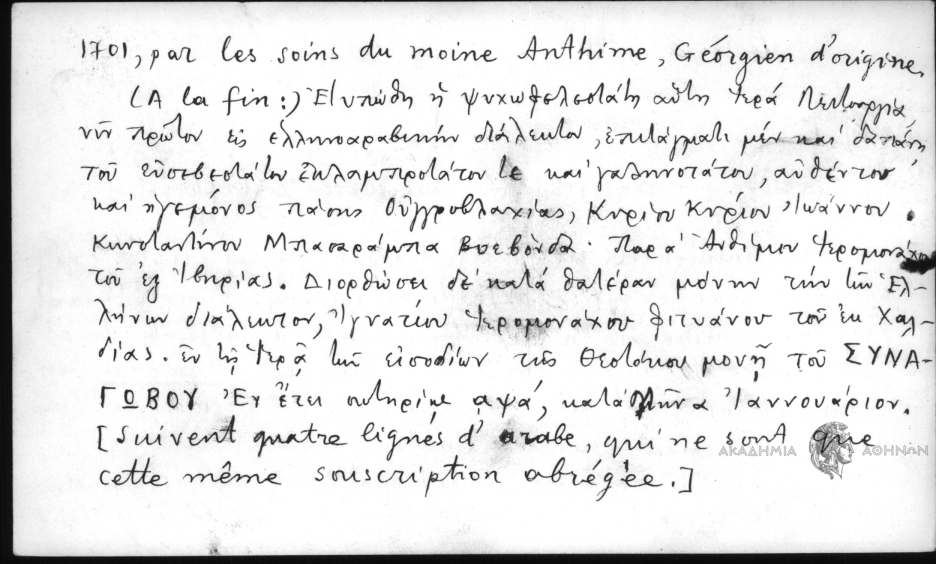 1701, par les soins du moine Anthime, Géorgien d'origine.
(A la fin:) Ἐτυπώθη ἡ ψυχωφελεστάτη αὕτη ἱερά Λειτουργία,
νῦν πρῶτον εἰς ἑλληνοαραβικήν διάλεκτον, ἐπιτάγματι μέν καί δαπάνῃ
τοῦ εὐσεβεστάτου ἐκλαμπροτάτου τε καί γαληνοτάτου, αὐθέντου
καί ἡγεμόνος πάσης Οὑγγροβλαχίας, Κυρίου Κυρίου Ἰωάννου
Κωνσταντίνου Μπασαράμπα Βοεβόνδα. Παρά Ἀνθίμου ἱερομονάχου
τοῦ ἐξ Ἰβηρίας. Διορθώσει δέ κατά θατέραν μόνην τήν τῶν Ἑλ-
λήνων διάλεκτον, Ἰγνατίου ἱερομονάχου φιτυάνου τοῦ ἐκ Χαλ-
δίας. ἐν τῇ ἱερᾷ τῶν εἰσοδίων τῆς Θεοτόκου μονῇ τοῦ ΣΥΝΑ-
ΓΩΒΟΥ Ἐν ἔτει σωτηρίῳ αψά, κατά μῆνα Ἰαννουάριον.
[Suivent quatre lignes d'arabe, qui ne sont que
cette même souscription abrégée.]
ΑΚΑΔΗΜΙΑ ΑΘΗΝΩΝ